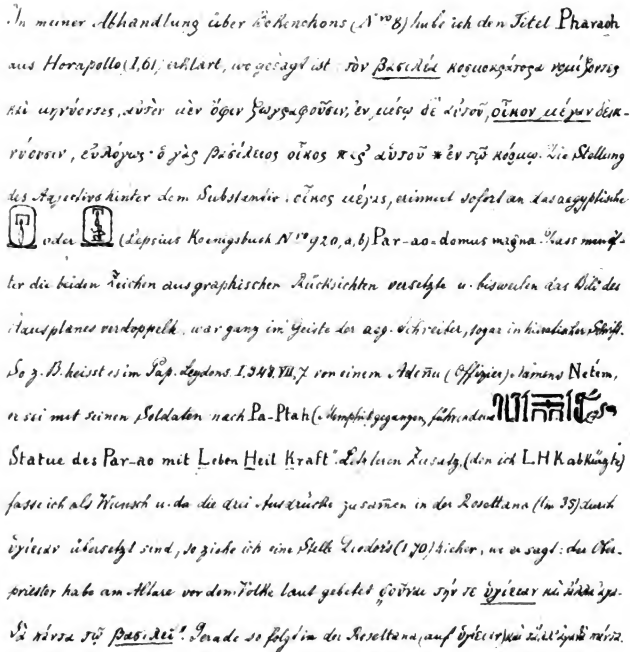 In meiner Abhandlung über Bekenchons (Nro 8) habe ich den Titel Pharaoh
aus Horapollo (I,61) erklärt, wo gesagt ist: τὸν βασιλέα κοσμοκράτορα νομίζοντες
καὶ μηνύοντες, αὐτὸν μὲν ὄφιν ζωγραφοῦσιν, ἐν μέσῳ δὲ αὐτοῦ, οἶκον μέγαν δεικ-
νύουσιν, εὐλόγως· ὁ γὰρ βασίλειος οἶκος παρ' αὐτοῦ * ἐν τῷ κόσμῳ. Die Stellung
des Adjectivs hinter dem Substantiv: οἶκος μέγας, erinnert sofort an das aegyptische
oder (Lepsius Koenigsbuch Nro 920,a,b) Par-ao = domus magna. Dass man öf-
ter die beiden Zeichen aus graphischen Rücksichten versetzte u. bisweilen das Bild des
Hausplanes verdoppelt, war ganz im Geiste der aeg. Schreiber, sogar in hieratischer Schrift.
So z. B. heisst es im Pap. Leydens. I,348. VII,7 von einem Adenu (Offizier) Namens Netem,
er sei mit seinen Soldaten nach Pa-Ptah (Memphis) gegangen, führend eine
Statue des Par-ao mit Leben Heil Kraft". Letzteren Zusatz, (den ich LHK abkürzte)
fasse ich als Wunsch u. da die drei Ausdrücke zusam̄en in der Rosettana (lin 35) durch
ὑγίειαν übersetzt sind, so ziehe ich eine Stelle Diodors (I 70) hieher, wo er sagt: der Ober-
priester habe am Altare vor dem Volke laut gebetet „δοῦναι τήν τε ὑγίειαν καὶ τἄλλα ἀγα-
θὰ πάντα τῷ βασιλεῖ". Gerade so folgt in der Rosettana (auf ὑγίειαν) καὶ τἄλλ' ἀγαθὰ πάντα.